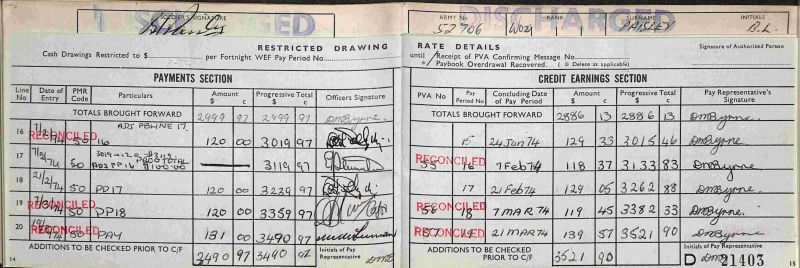 SOLDIER'S SIGNATURE
DISCHARGED
RESTRICTED DRAWING
Cash Drawings Restricted to $ per Fortnight WEF Pay Period No.
PAYMENTS SECTION
Line No Date of Entry PMR Code Particulars Amount $ c Progressive Total $ c Officers Signature
TOTALS BROUGHT FORWARD 2999 97 2999 97 DMByrne
ADJ PBLINE 17.
16 50 16 120 00 3019 97
RECONCILED
17 74 50 ADJ PP16 3119 97
RECONCILED
18 21/2/74 50 PP17 120 00 3239 97
19 7/3/74 50 PP18 120 00 3359 97
RECONCILED
20 74 50 PAY 131 00 3490 97
RECONCILED
ADDITIONS TO BE CHECKED PRIOR TO C/F 3490 97 Initials of Pay Representative DMB
14
ARMY No 52706 RANK WO2 SURNAME PAISLEY INITIALS B.L.
DISCHARGED
RATE DETAILS
until Receipt of PVA Confirming Message No
Paybook Overdrawal Recovered. ( Delete as applicable)
Signature of Authorized Person
CREDIT EARNINGS SECTION
PVA No Pay Period No Concluding Date of Pay Period Amount $ c Progressive Total $ c Pay Representative's Signature
TOTALS BROUGHT FORWARD 2886 13 2886 13 DMByrne.
15 24 Jan 74 129 33 3015 46 DMByrne.
55 16 7 Feb 74 118 37 3133 83 DMByrne
RECONCILED
17 21 Feb 74 129 05 3262 88 DMByrne.
56 18 7 MAR 74 119 45 3382 33 DMByrne.
RECONCILED
57 19 21 MAR 74 139 57 3521 90 DMByrne
RECONCILED
ADDITIONS TO BE CHECKED PRIOR TO C/F 3521 90 Initials of Pay Representative DMB
D 21403
15